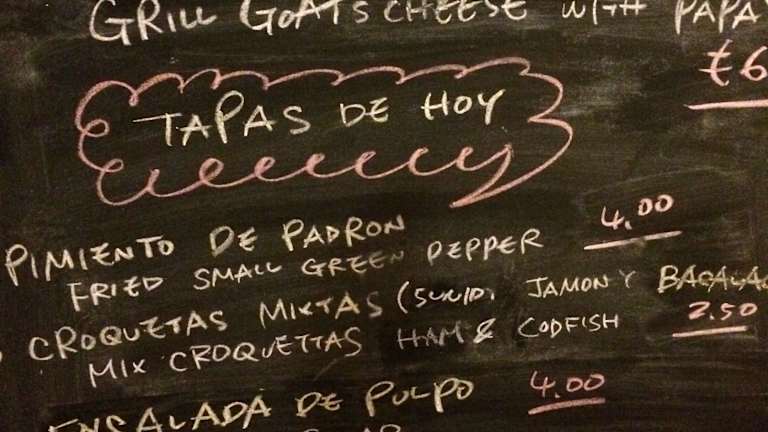 GRILL GOATS CHEESE WITH PAPA
€6
TAPAS DE HOY
PIMIENTO DE PADRON
FRIED SMALL GREEN PEPPER 4.00
CROQUETAS MIXTAS (5UNID. JAMON Y BACALAO
MIX CROQUETTAS HAM & CODFISH 2.50
ENSALADA DE PULPO 4.00